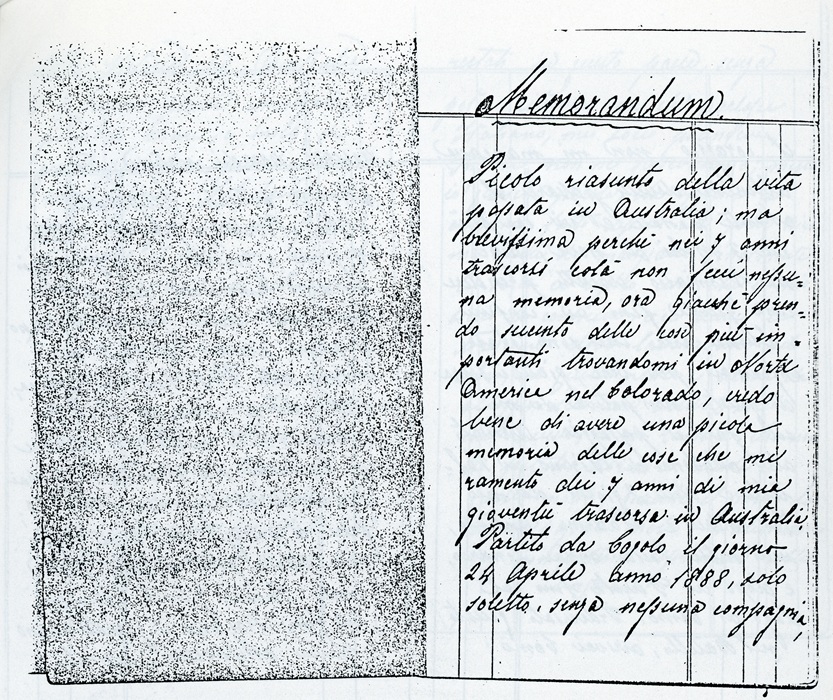 Memorandum.
Picolo riasunto della vita
passata in Australia; ma
brevissima perchè nei 7 anni
trascorsi colà non feci nessu=
na memoria, ora giacchè pren=
do sucunto delle cose più im=
portanti trovandomi in Norte
America nel Colorado, credo
bene di avere una picola
memoria delle cose che mi
ramento dei 7 anni di mia
gioventù trascorsa in Australia.
Partito da Cogolo il giorno
24 Aprile anno 1888, solo
soletto, senza nessuna compagnia,